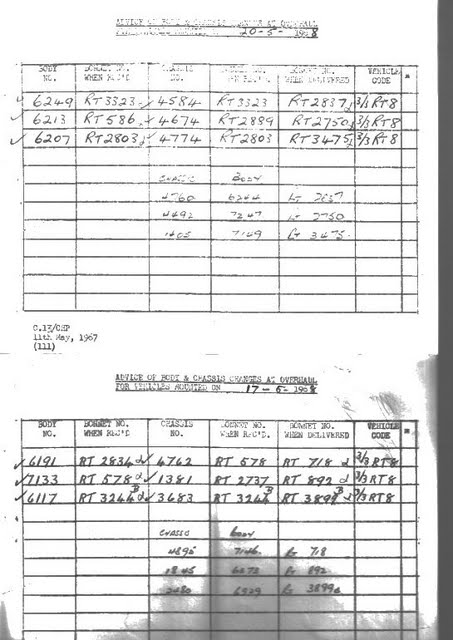 ADVICE OF BODY & CHASSIS CHANGES AT OVERHAUL
FOR VEHICLES MOUNTED ON 20-5-1968
BODY NO. BONNET NO. WHEN REC'D CHASSIS NO. BONNET NO. WHEN REC'D. BONNET NO. WHEN DELIVERED VEHICLE CODE *
✓ 6249 RT 3323 ✓ 4584 RT 3323 RT 2837 3/3 RT8
✓ 6213 RT 586 ✓ 4674 RT 2889 RT 2750 3/3 RT8
✓ 6207 RT 2803 ✓ 4774 RT 2803 RT 3475 3/3 RT8
CHASSIS BODY
4760 6244
4492 7247 2750
7149 3475
C.17/CHP
11th May, 1967
(111)
ADVICE OF BODY & CHASSIS CHANGES AT OVERHAUL
FOR VEHICLES MOUNTED ON 17-6-1968
BODY NO. BONNET NO. WHEN REC'D CHASSIS NO. BONNET NO. WHEN REC'D. BONNET NO. WHEN DELIVERED VEHICLE CODE *
✓ 6191 RT 2834 d ✓ 4762 RT 578 RT 718 d 3/3 RT8
✓ 7133 RT 578 d ✓ 1381 RT 2737 RT 892 d 3/3 RT8
✓ 6117 RT 3244 B d ✓ 3683 RT 3244 B RT 3899 B d 3/3 RT8
CHASSIS BODY
7146 718
892
6929